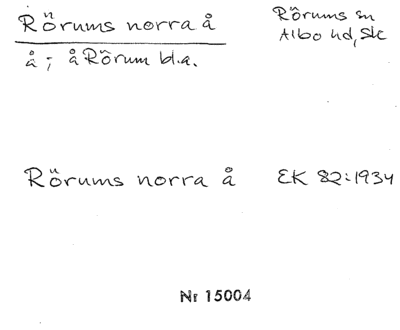 Rörums norra å
Rörums sn
Albo hd, Sk
å; å Rörum bl.a.
Rörums norra å EK 82:1934
Nr 15004